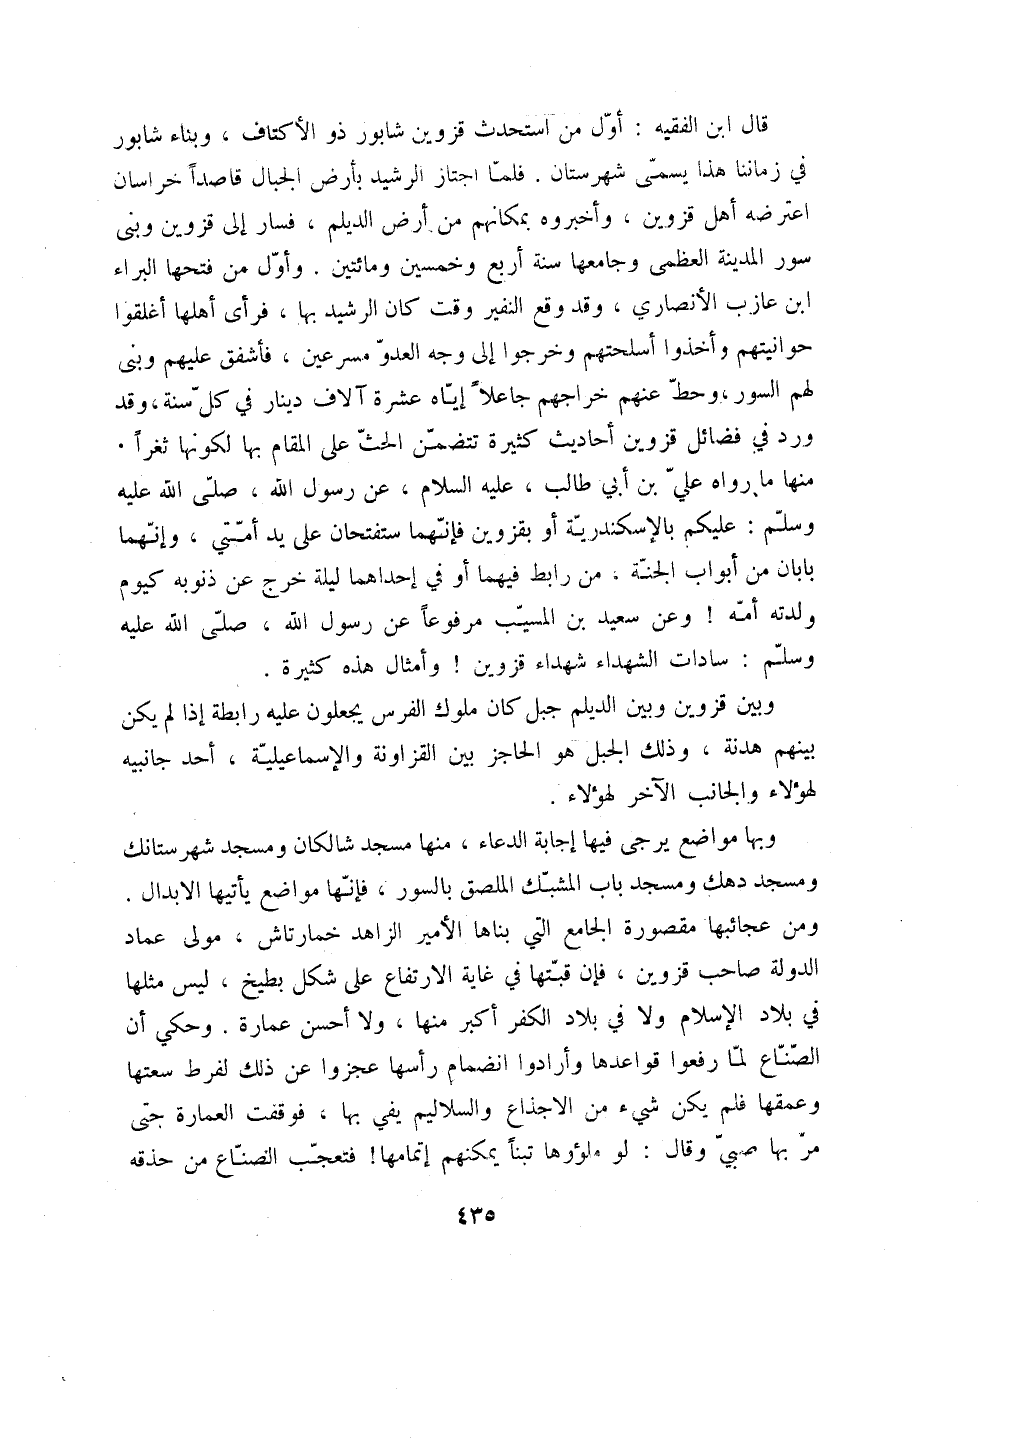 قال ابن الفقيه : أوّل من استحدث قزوين شابور ذو الأكتاف ، وبناء شابور
في زماننا هذا يسمّى شهرستان . فلمّا اجتاز الرشيد بأرض الجبال قاصداً خراسان
اعترضه أهل قزوين ، وأخبروه بمكانهم من أرض الديلم ، فسار إلى قزوين وبنى
سور المدينة العظمى وجامعها سنة أربع وخمسين ومائتين . وأوّل من فتحها البراء
ابن عازب الأنصاري ، وقد وقع النفير وقت كان الرشيد بها ، فرأى أهلها أغلقوا
حوانيتهم وأخذوا أسلحتهم وخرجوا إلى وجه العدوّ مسرعين ، فأشفق عليهم وبنى
لهم السور ، وحطّ عنهم خراجهم جاعلاً إيّاه عشرة آلاف دينار في كلّ سنة ، وقد
ورد في فضائل قزوين أحاديث كثيرة تتضمّن الحثّ على المقام بها لكونها ثغراً .
منها ما رواه عليّ بن أبي طالب ، عليه السلام ، عن رسول الله ، صلّى الله عليه
وسلّم : عليكم بالإسكندريّة أو بقزوين فإنّهما ستفتحان على يد أمّتي ، وإنّهما
بابان من أبواب الجنّة ، من رابط فيهما أو في إحداهما ليلة خرج عن ذنوبه كيوم
ولدته أمّه ! وعن سعيد بن المسيّب مرفوعاً عن رسول الله ، صلّى الله عليه
وسلّم : سادات الشهداء شهداء قزوين ! وأمثال هذه كثيرة .
وبين قزوين وبين الديلم جبل كان ملوك الفرس يجعلون عليه رابطة إذا لم يكن
بينهم هدنة ، وذلك الجبل هو الحاجز بين القزاونة والإسماعيليّة ، أحد جانبيه
لهؤلاء والجانب الآخر لهؤلاء .
وبها مواضع يرجى فيها إجابة الدعاء ، منها مسجد شالكان ومسجد شهرستانك
ومسجد دهك ومسجد باب المشبّك الملصق بالسور ، فإنّها مواضع يأتيها الابدال .
ومن عجائبها مقصورة الجامع التي بناها الأمير الزاهد خمارتاش ، مولى عماد
الدولة صاحب قزوين ، فإن قبّتها في غاية الارتفاع على شكل بطيخ ، ليس مثلها
في بلاد الإسلام ولا في بلاد الكفر أكبر منها ، ولا أحسن عمارة . وحكي أن
الصّنّاع لمّا رفعوا قواعدها وأرادوا انضمام رأسها عجزوا عن ذلك لفرط سعتها
وعمقها فلم يكن شيء من الاجذاع والسلاليم يفي بها ، فوقفت العمارة حتى
مرّ بها صبيّ وقال : لو ملؤوها تبناً يمكنهم إتمامها! فتعجّب الصنّاع من حذقه
٤٣٥